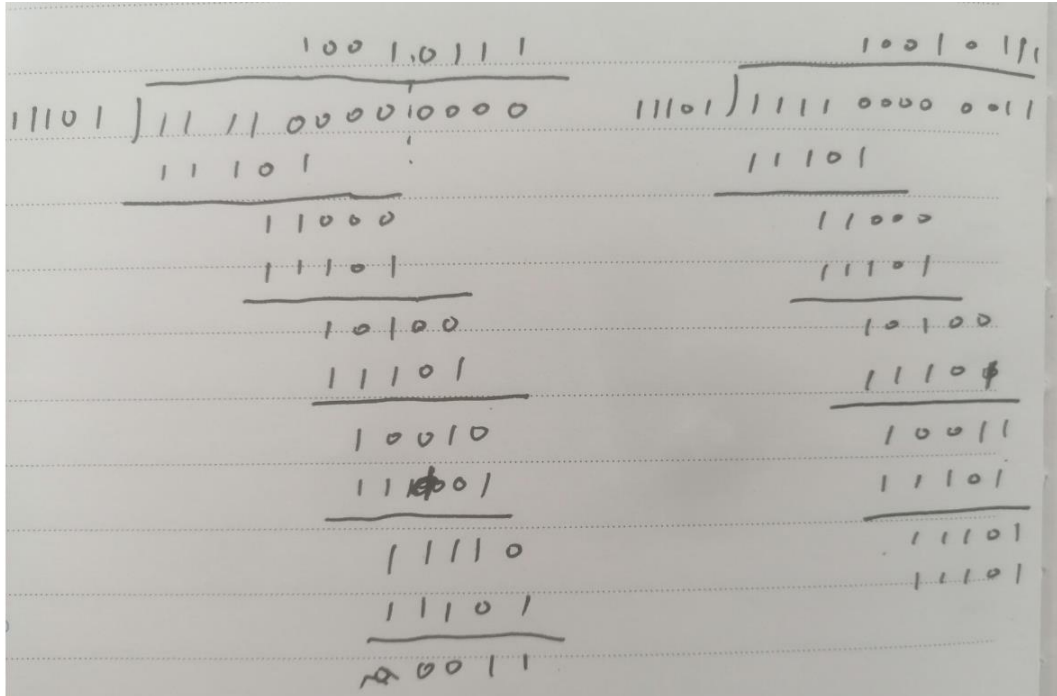 1001.0111
11101 ) 111100000000
11101
11000
11101
10100
11101
10010
11001
11110
11101
0011
1001011
11101 ) 1111 0000 0011
11101
11000
11101
10100
11101
10011
11101
11101
11101